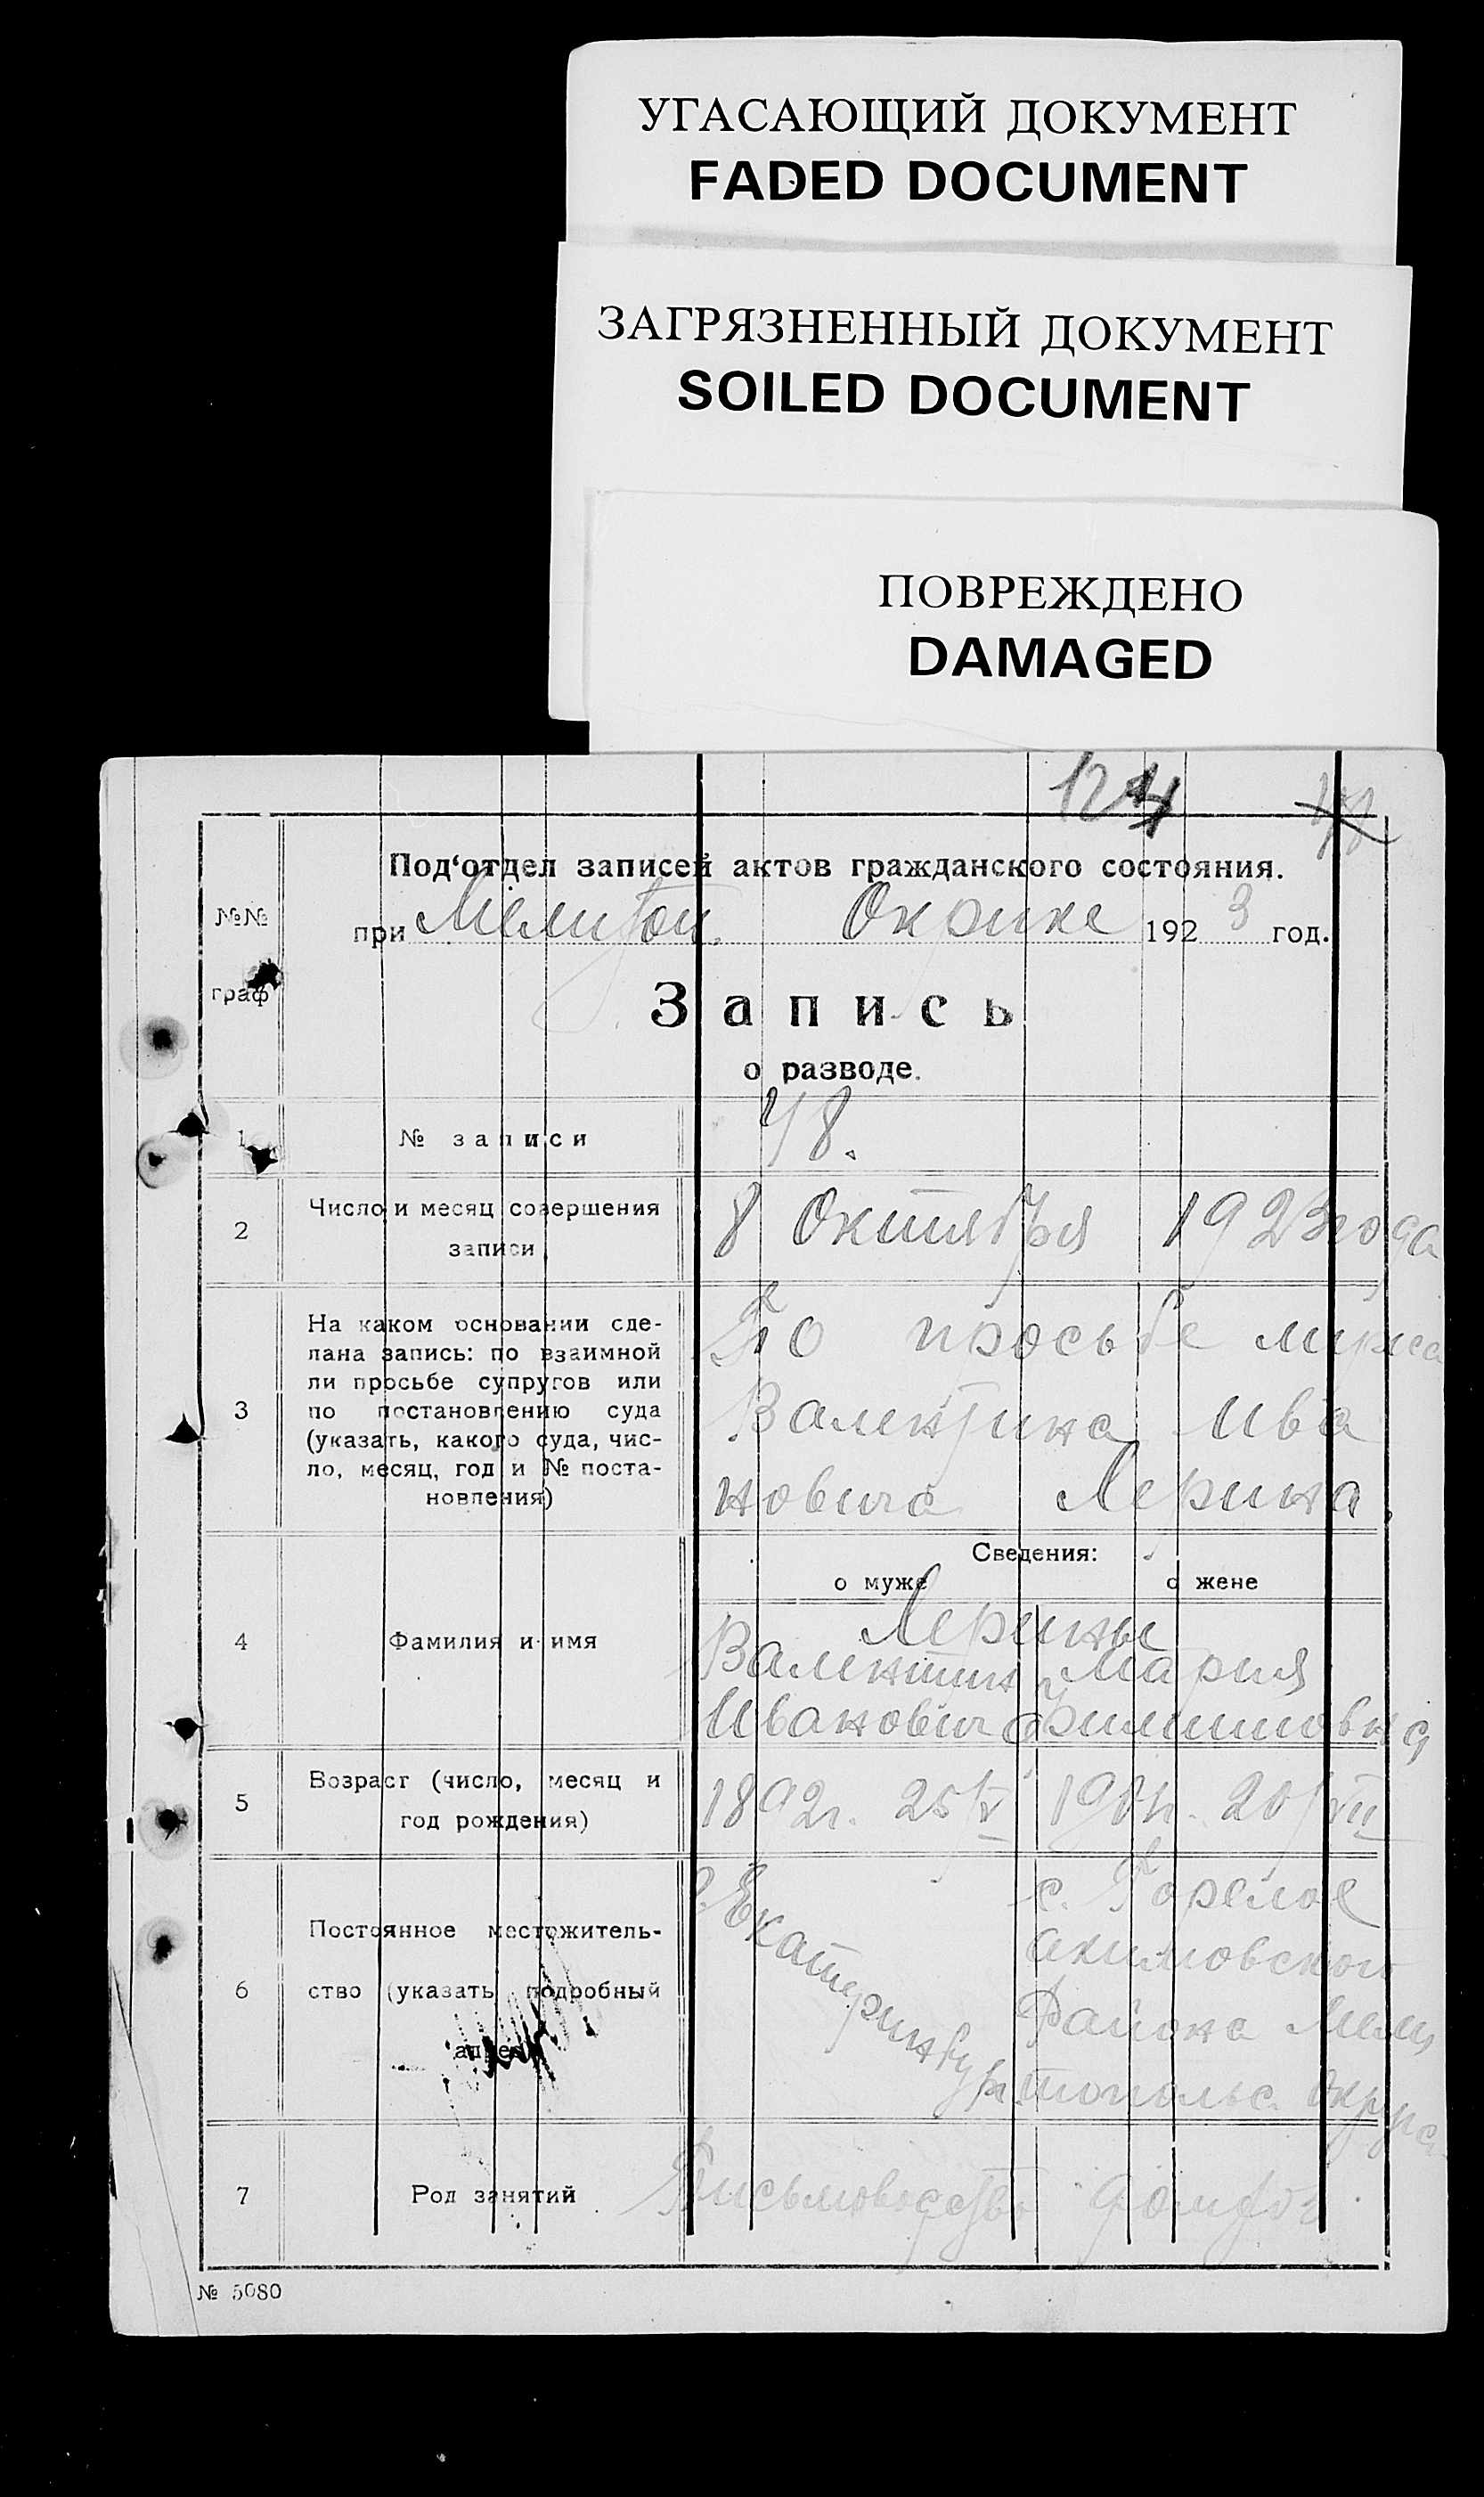 УГАСАЮЩИЙ ДОКУМЕНТ
FADED DOCUMENT
ЗАГРЯЗНЕННЫЙ ДОКУМЕНТ
SOILED DOCUMENT
ПОВРЕЖДЕНО
DAMAGED
Под‘отдел записей актов гражданского состояния.
№№ граф
при Мелитоп. Окрике 1923 год.
Запись
о разводе.
1 № записи 48.
2 Число и месяц совершения
записи
8 Октября 1923 года
3 На каком основании сде-
лана запись: по взаимной
ли просьбе супругов или
по постановлению суда
(указать, какого суда, чис-
ло, месяц, год и № поста-
новления)
По просьбе мужа
Валентина Ива
новича Лерина
Сведения:
о муже о жене
4 Фамилия и имя
Лерины
Валентин Мария
Иванович Филипповна
5 Возраст (число, месяц и
год рождения)
1892г. 25/V 20/VII
6 Постоянное местожитель-
ство (указать подробный
адрес)
г. Екатеринбург
с. Горелое
Акимовского
Района Мели
топольс. округа
7 Род занятий
Письмоводство
№ 5080